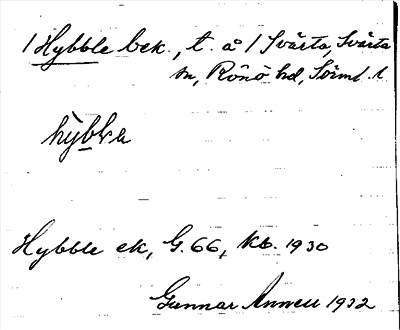 / Hybble bek., t. å / Svärta, Svärta
sn, Rönö hd, Sörml. l.
hybbla
Hybble ek, G. 66, Kb. 1930
Gunnar Annell 1932